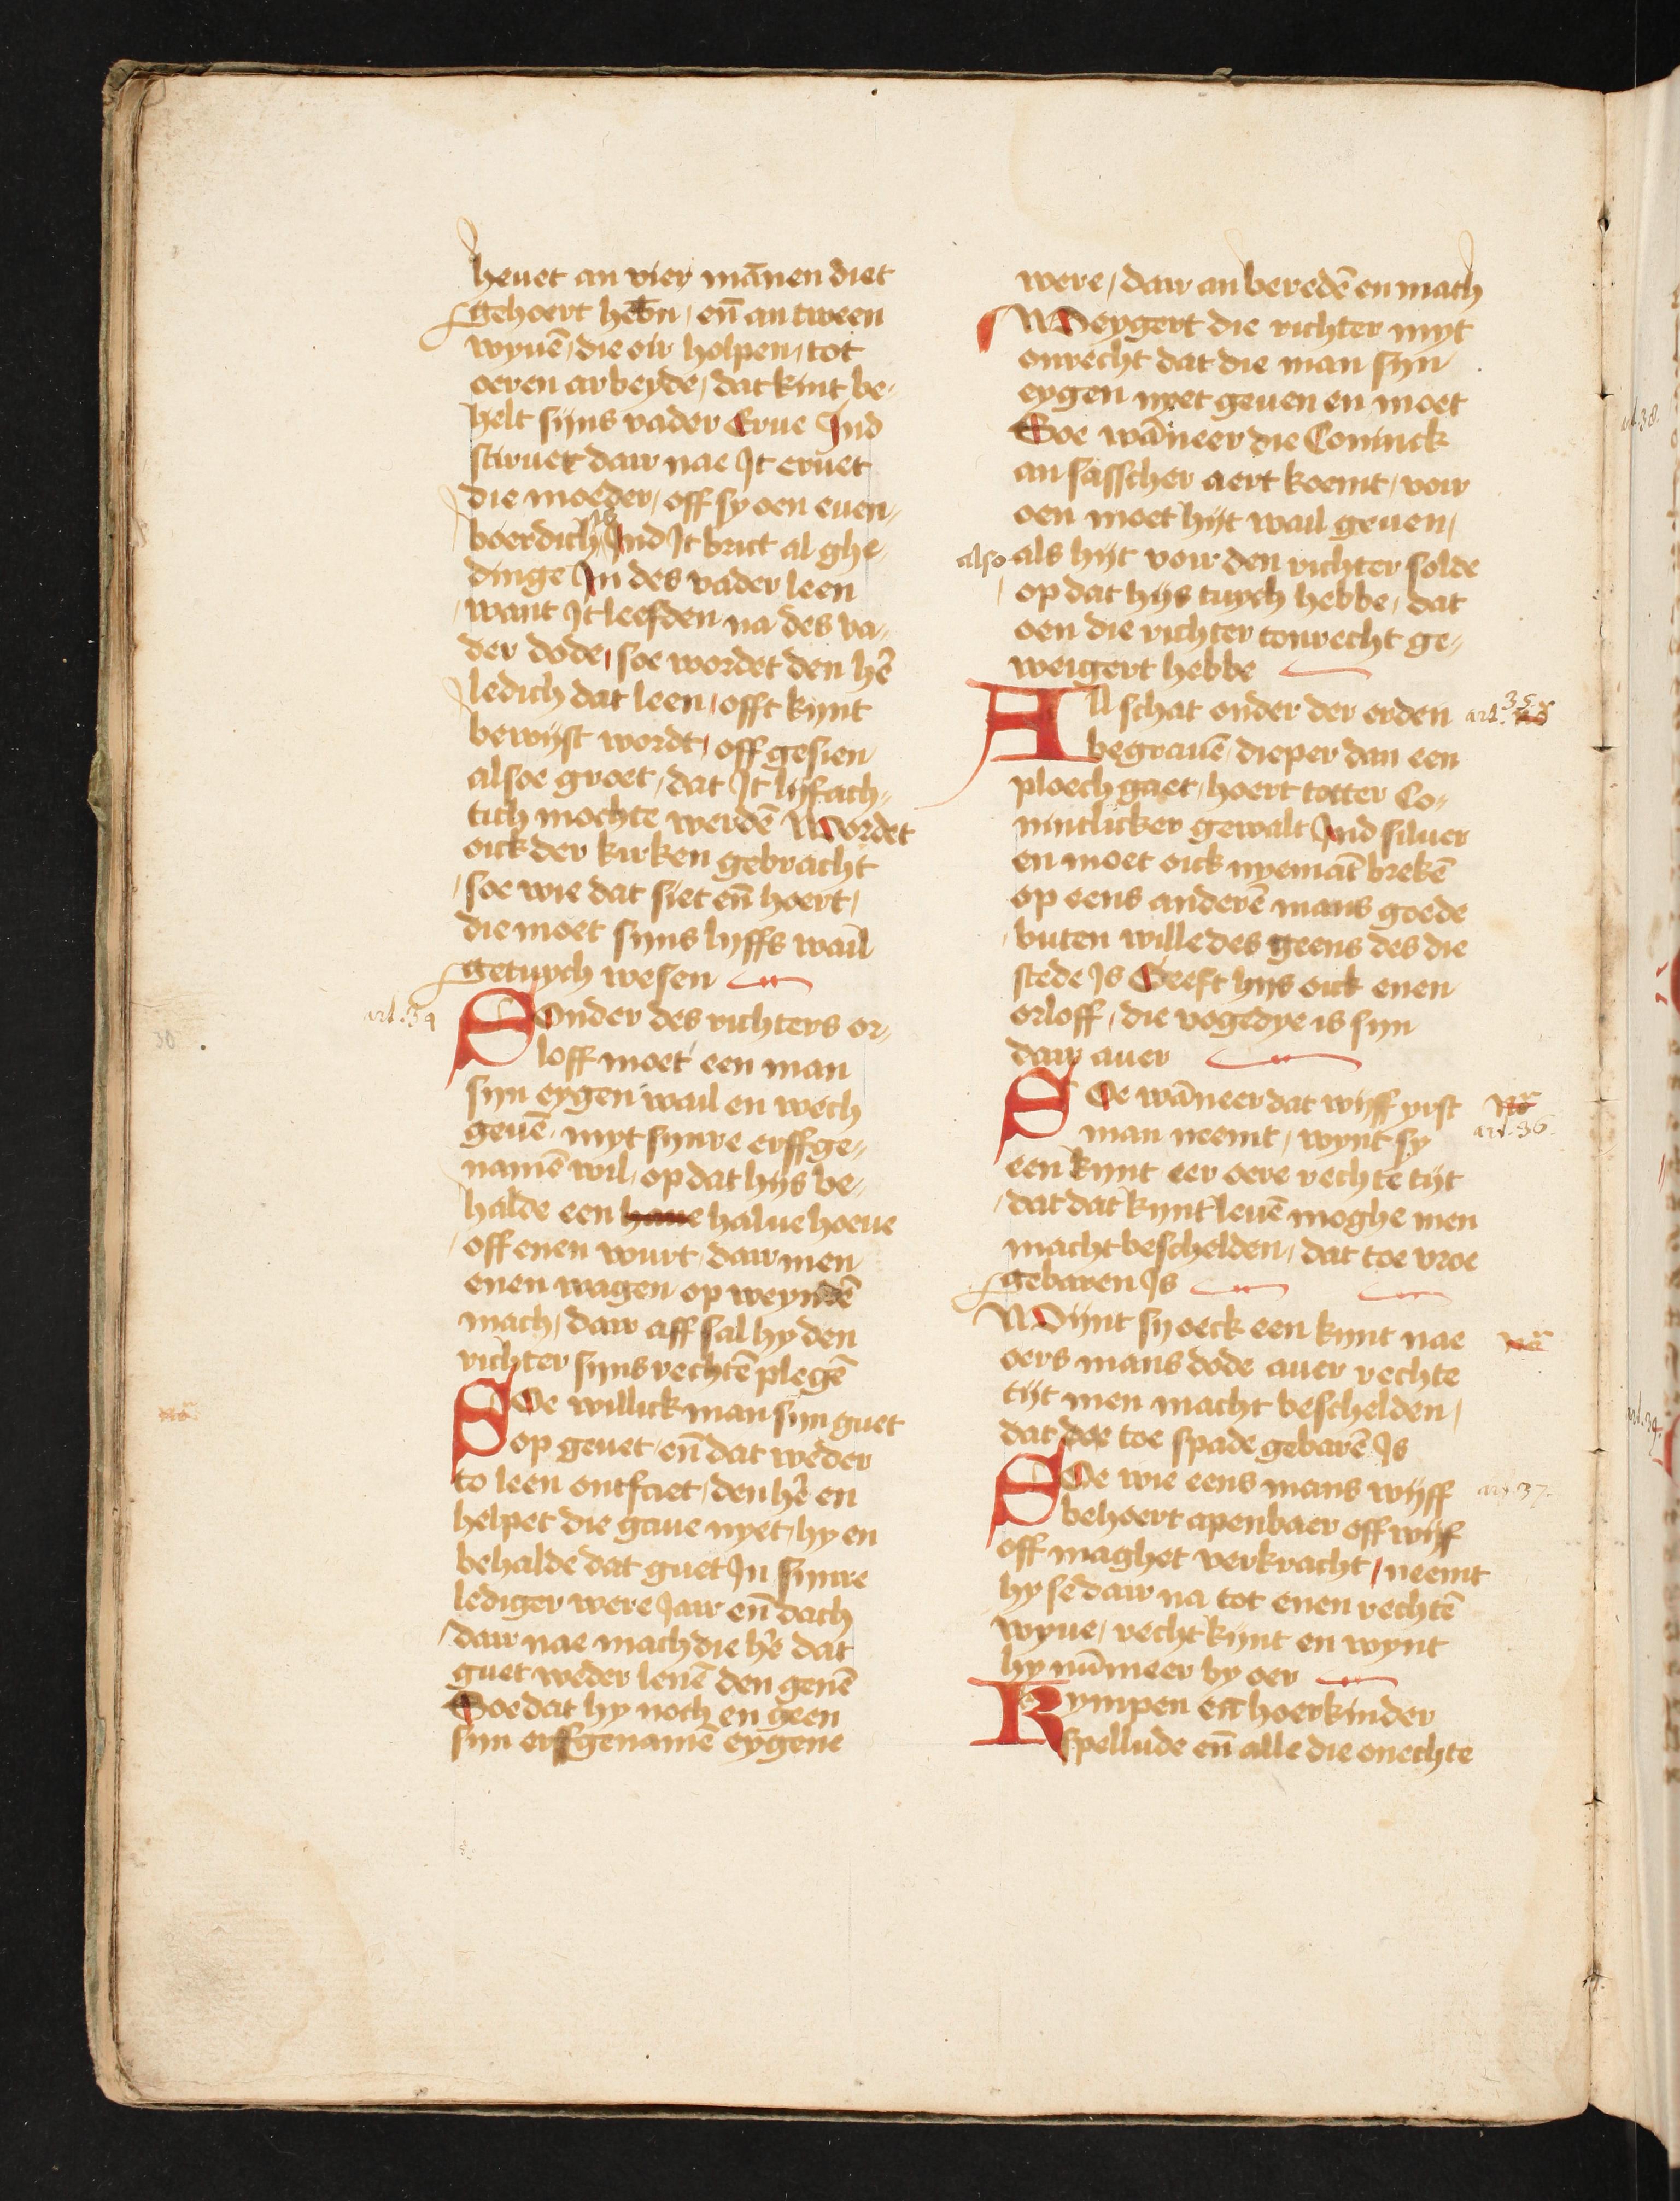 heuet an vier mānen diet
gehoert hebn / en̄ an tween
wyuē / die oir holpen / tot
oeren arbeyde / dat kint be-
helt sijns vader Erue Ind
stiruet dair nae It eruet
die moeder / off sy oen euen-
boerdich is Ind It brict al ghe-
dinge In des vader leen
want It leefden na des va-
der dode / soe wordet den hē
ledich dat leen / offt kynt
bewijst wordt / off gesien
alsoe groet / dat It lijfach-
tich mochte werdē Wordet
oick der kirken gebracht
soe wie dat siet en̄ hoert /
die moet sijns lyffs wail
getuych wesen
art. 34
Sonder des richters or-
loff moet een man
sijn eygen wail en wech
geuē / myt synre erffge-
namē wil / op dat hijs be-
halde een haue halue hoeue
off enen wurt / dair men
enen wagen op weyndē
mach / dair aff sal hy den
richter sijns rechtē plegē
Soe willick man sijn guet
op geuet / en̄ dat weder
to leen ontfaet / den hē en
helpet die gaue nyet / hy en
behalde dat guet In synre
lediger were Jair en̄ dach
dair nae mach die hē dat
guet weder lenē den genē
Soe dat hy noch en geen
sijn erffgenamē eygene
were / dair an beredē en mach
Weygert die richter myt
onrecht dat die man sijn
eygen nyet geuen en moet
Soe wāneer die Coninck
an sasscher aert koemt / voir
oen moet hijt wail geuen /
also als hijt voir den richter solde
op dat hijs tuych hebbe / dat
oen die richter tonrecht ge-
weigert hebbe
All schat onder der erden
art. 35
begrauē / dieper dan een
ploech gaet / hoert totter Co-
nincklicker gewalt Ind siluer
en moet oick nyemāt brekē
op eens anderē mans goede
buten wille des geens des die
stede Is Geeft hijs oick enen
orloff / die vogedye is sijn
dair auer
Soe wāneer dat wijff yrst
art. 36.
man neemt / wynt sy
een kynt eer oere rechte tijt
dat dat kynt leuē moghe men
macht beschelden / dat toe vroe
gebaren Is
Wijnt sij oeck een kynt nae
oers mans dode auer rechte
tijt men macht beschelden /
dat doe toe spade gebarē Is
Soe wie eens mans wijff
art. 37.
behoert apenbaer off wijf
off maghet verkracht / neemt
hy se dair na tot enen rechtē
wyue / recht kijnt en wynt
hy nūmeer by oer
Kympen en̄ hoerkinder
spellude en̄ alle die onechte